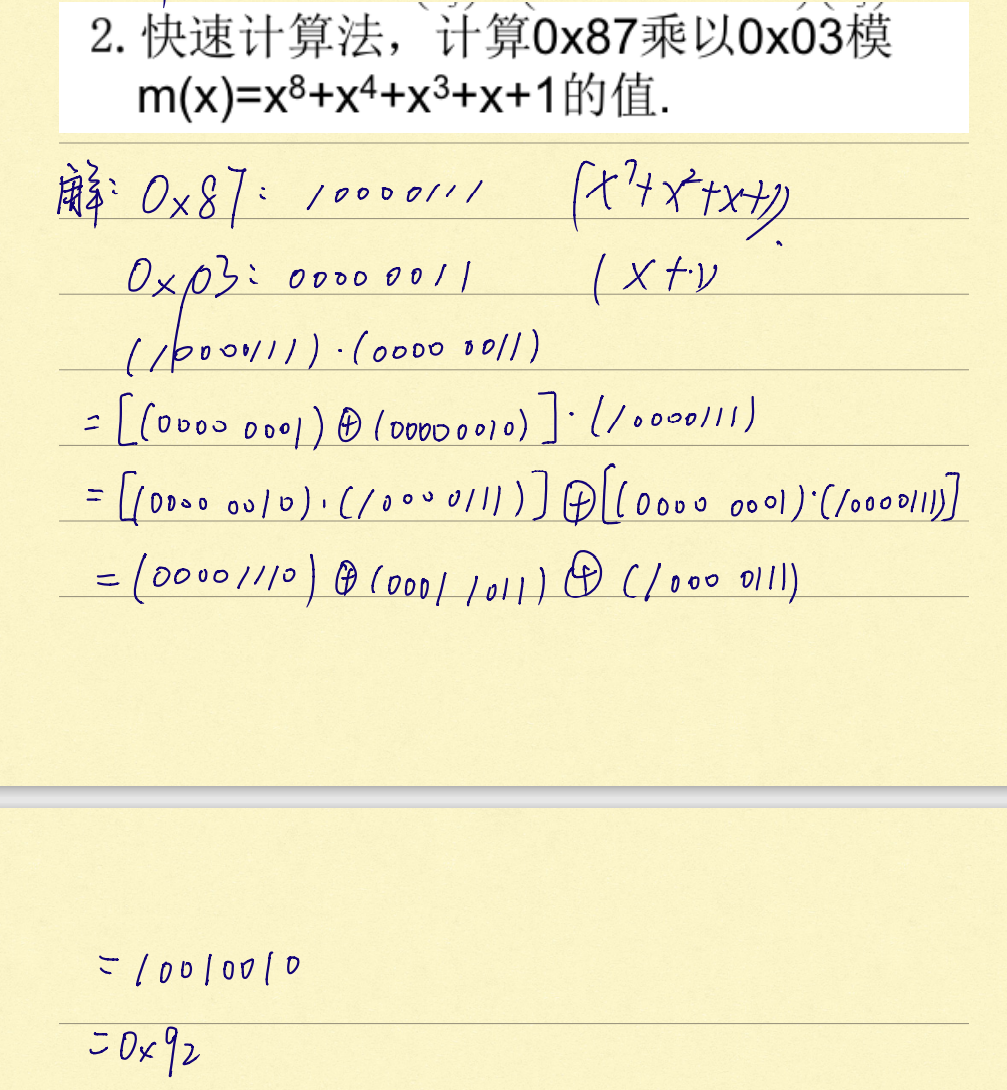 2. 快速计算法，计算0x87乘以0x03模
m(x)=x⁸+x⁴+x³+x+1的值.
解: 0x87: 10000111 (x⁷+x²+x+1)
0x03: 0000 0011 (x+1)
(10000111)·(0000 0011)
=[(0000 0001)⊕(00000010)]·(10000111)
=[(0000 0010)·(1000 0111)]⊕[(0000 0001)·(10000111)]
=(00001110)⊕(0001 1011)⊕(1000 0111)
=10010010
=0x92